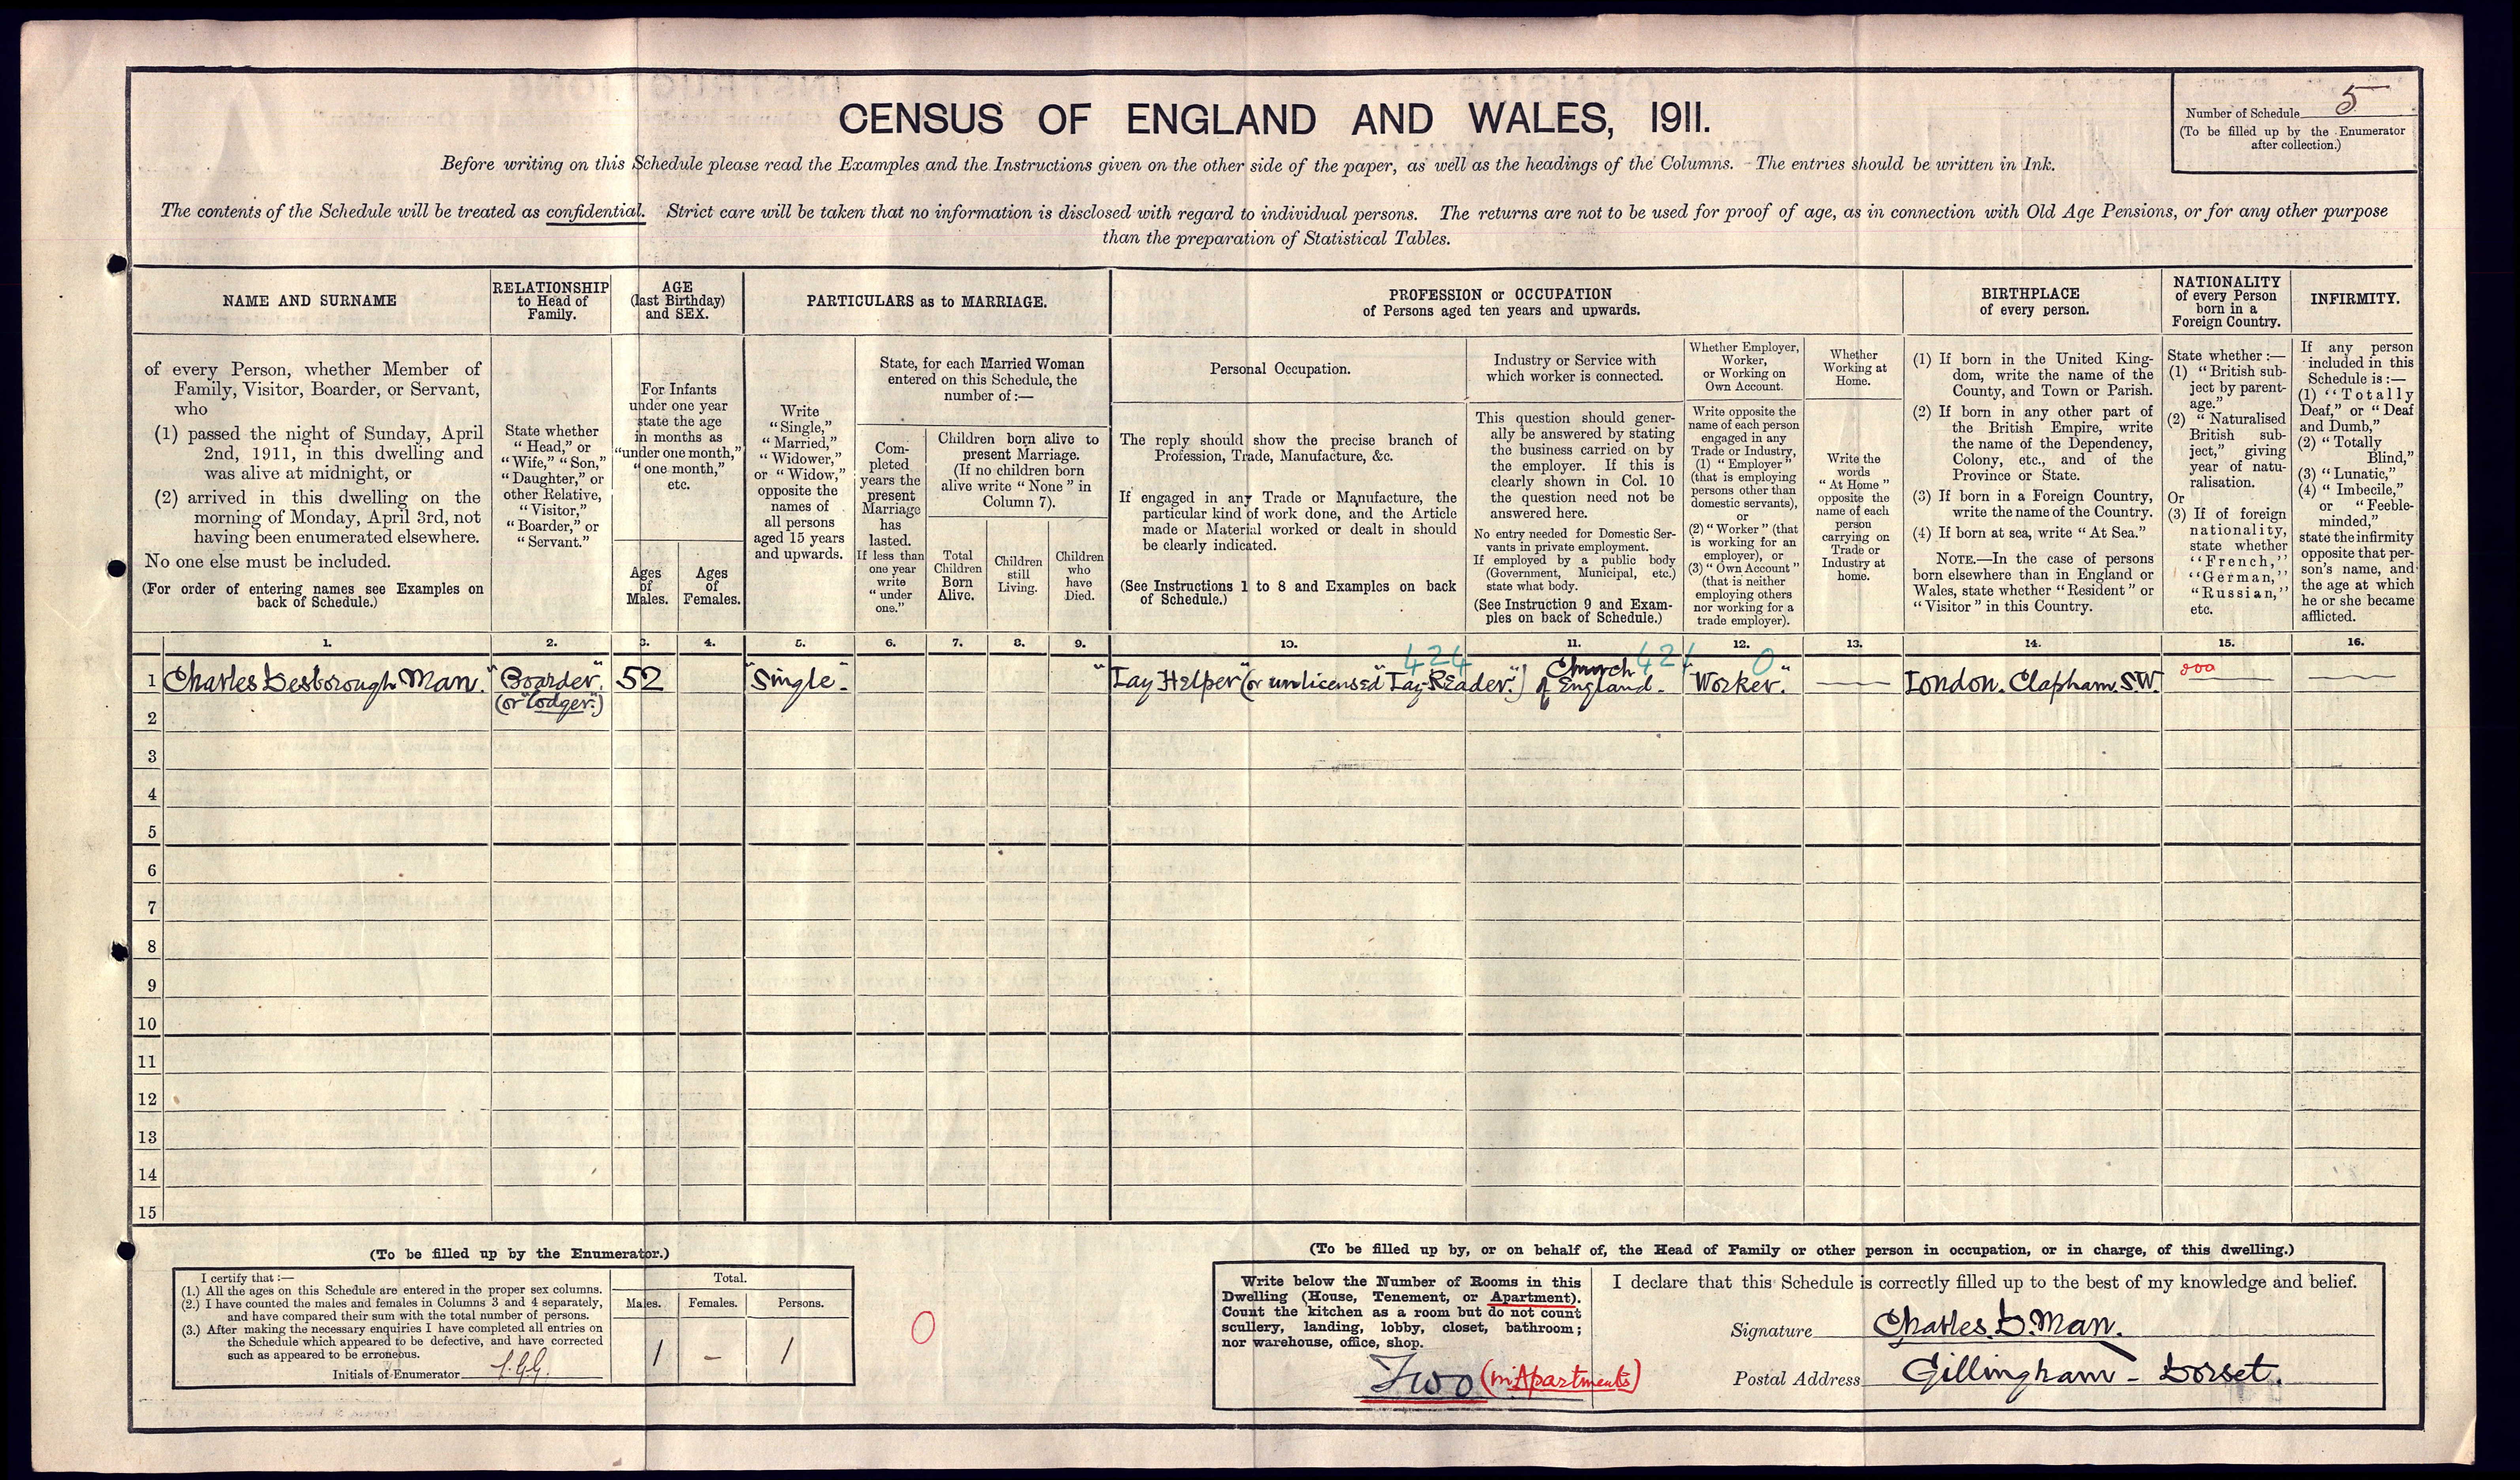 CENSUS OF ENGLAND AND WALES, 1911.
Number of Schedule 5
(To be filled up by the Enumerator
after collection.)
Before writing on this Schedule please read the Examples and the Instructions given on the other side of the paper, as well as the headings of the Columns. The entries should be written in Ink.
The contents of the Schedule will be treated as confidential. Strict care will be taken that no information is disclosed with regard to individual persons. The returns are not to be used for proof of age, as in connection with Old Age Pensions, or for any other purpose
than the preparation of Statistical Tables.
NAME AND SURNAME
of every Person, whether Member of
Family, Visitor, Boarder, or Servant,
who
(1) passed the night of Sunday, April
2nd, 1911, in this dwelling and
was alive at midnight, or
(2) arrived in this dwelling on the
morning of Monday, April 3rd, not
having been enumerated elsewhere.
No one else must be included.
(For order of entering names see Examples on
back of Schedule.)
RELATIONSHIP
to Head of
Family.
State whether
"Head," or
"Wife," "Son,"
"Daughter," or
other Relative,
"Visitor,"
"Boarder," or
"Servant."
AGE
(last Birthday)
and SEX.
For Infants
under one year
state the age
in months as
"under one month,"
"one month,"
etc.
Ages
of
Males.
Ages
of
Females.
PARTICULARS as to MARRIAGE.
Write
"Single,"
"Married,"
"Widower,"
or "Widow,"
opposite the
names of
all persons
aged 15 years
and upwards.
State, for each Married Woman
entered on this Schedule, the
number of:—
Com-
pleted
years the
present
Marriage
has
lasted.
If less than
one year
write
"under
one."
Children born alive to
present Marriage.
(If no children born
alive write "None" in
Column 7).
Total
Children
Born
Alive.
Children
still
Living.
Children
who
have
Died.
PROFESSION or OCCUPATION
of Persons aged ten years and upwards.
Personal Occupation.
The reply should show the precise branch of
Profession, Trade, Manufacture, &c.
If engaged in any Trade or Manufacture, the
particular kind of work done, and the Article
made or Material worked or dealt in should
be clearly indicated.
(See Instructions 1 to 8 and Examples on back
of Schedule.)
Industry or Service with
which worker is connected.
This question should gener-
ally be answered by stating
the business carried on by
the employer. If this is
clearly shown in Col. 10
the question need not be
answered here.
No entry needed for Domestic Ser-
vants in private employment.
If employed by a public body
(Government, Municipal, etc.)
state what body.
(See Instruction 9 and Exam-
ples on back of Schedule.)
Whether Employer,
Worker,
or Working on
Own Account.
Write opposite the
name of each person
engaged in any
Trade or Industry,
(1) "Employer"
(that is employing
persons other than
domestic servants),
or
(2) "Worker" (that
is working for an
employer), or
(3) "Own Account"
(that is neither
employing others
nor working for a
trade employer).
Whether
Working at
Home.
Write the
words
"At Home"
opposite the
name of each
person
carrying on
Trade or
Industry at
home.
BIRTHPLACE
of every person.
(1) If born in the United King-
dom, write the name of the
County, and Town or Parish.
(2) If born in any other part of
the British Empire, write
the name of the Dependency,
Colony, etc., and of the
Province or State.
(3) If born in a Foreign Country,
write the name of the Country.
(4) If born at sea, write "At Sea."
NOTE.—In the case of persons
born elsewhere than in England or
Wales, state whether "Resident" or
"Visitor" in this Country.
NATIONALITY
of every Person
born in a
Foreign Country.
State whether:—
(1) "British sub-
ject by parent-
age."
(2) "Naturalised
British sub-
ject," giving
year of natu-
ralisation.
Or
(3) If of foreign
nationality,
state whether
"French,"
"German,"
"Russian,"
etc.
INFIRMITY.
If any person
included in this
Schedule is:—
(1) "Totally
Deaf," or "Deaf
and Dumb,"
(2) "Totally
Blind,"
(3) "Lunatic,"
(4) "Imbecile,"
or "Feeble-
minded,"
state the infirmity
opposite that per-
son's name, and
the age at which
he or she became
afflicted.
1. 2. 3. 4. 5. 6. 7. 8. 9. 10. 11. 12. 13. 14. 15. 16.
424 0
1 Charles Desborough Man. "Boarder" 52 "Single" "Lay Helper" (or unlicensed "Lay-Reader".) Church of England. "Worker." London. Clapham. S.W.
(or "Lodger".)
2
3
4
5
6
7
8
9
10
11
12
13
14
15
(To be filled up by the Enumerator.)
I certify that:—
(1.) All the ages on this Schedule are entered in the proper sex columns.
(2.) I have counted the males and females in Columns 3 and 4 separately,
and have compared their sum with the total number of persons.
(3.) After making the necessary enquiries I have completed all entries on
the Schedule which appeared to be defective, and have corrected
such as appeared to be erroneous.
Initials of Enumerator
Total.
Males. Females. Persons.
1 – 1
0
(To be filled up by, or on behalf of, the Head of Family or other person in occupation, or in charge, of this dwelling.)
Write below the Number of Rooms in this
Dwelling (House, Tenement, or Apartment).
Count the kitchen as a room but do not count
scullery, landing, lobby, closet, bathroom;
nor warehouse, office, shop.
Two (in Apartments)
I declare that this Schedule is correctly filled up to the best of my knowledge and belief.
Signature Charles. D. Man.
Postal Address Gillingham – Dorset.